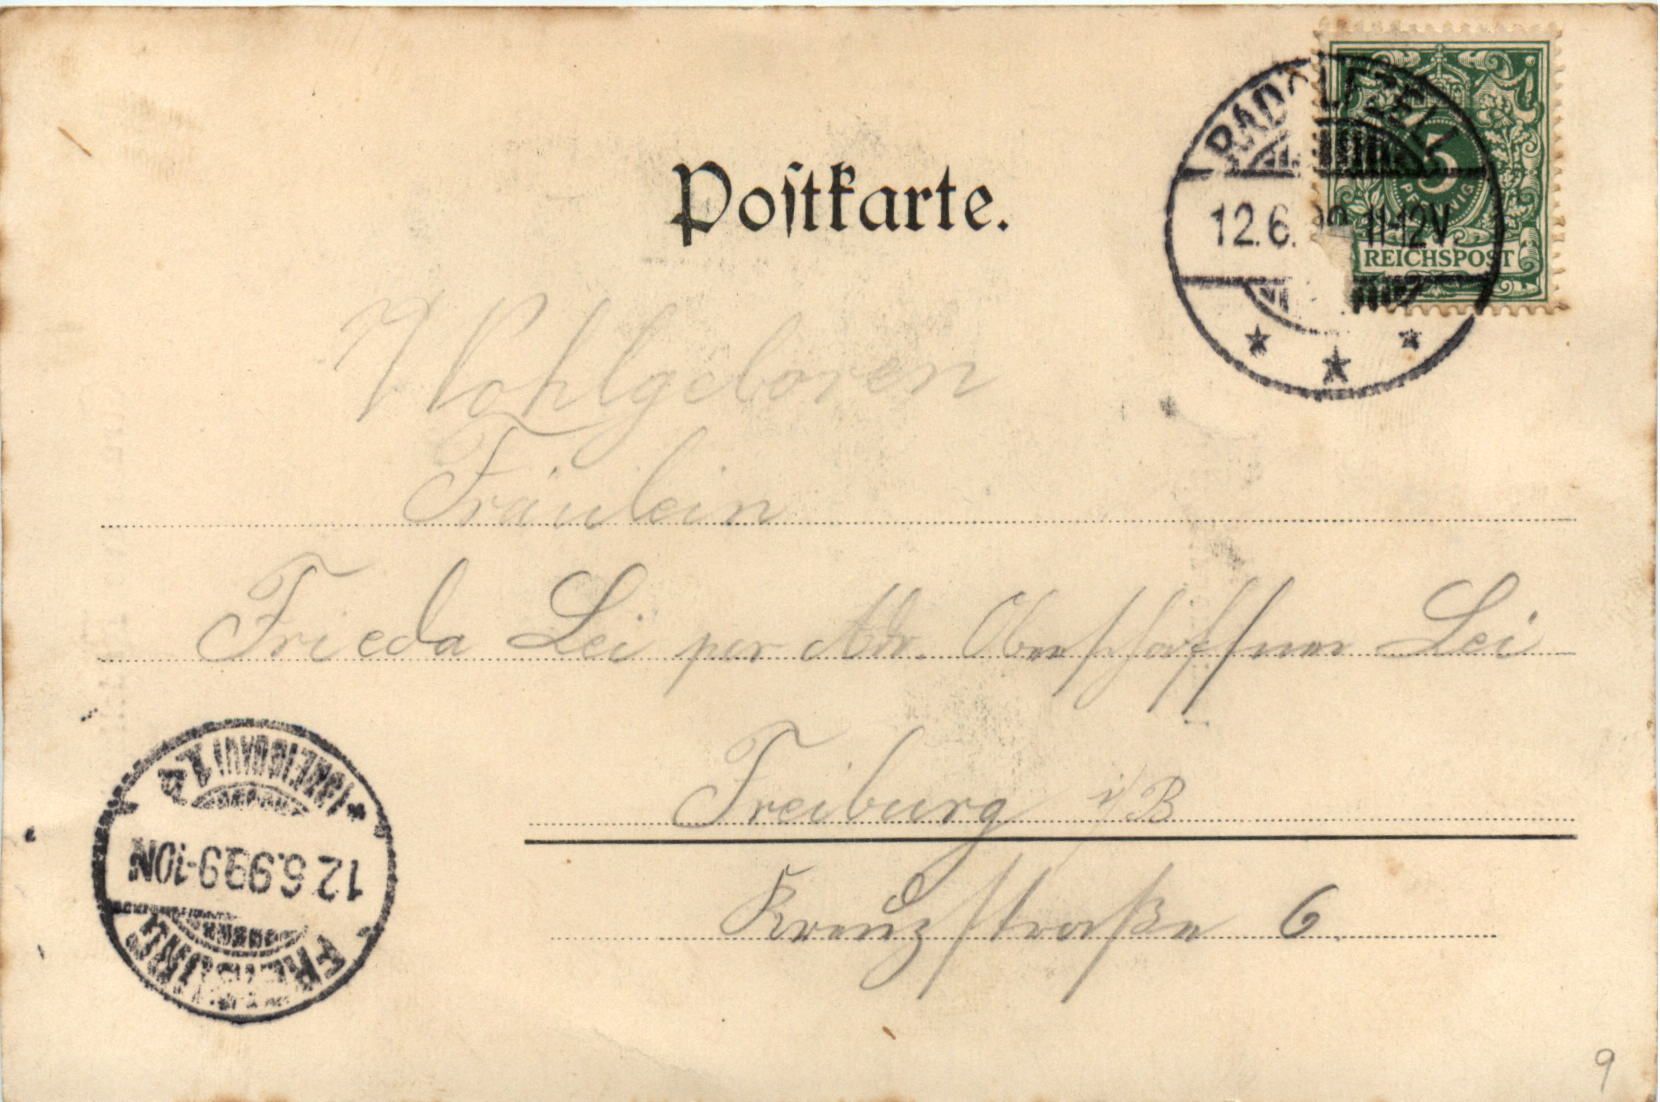 Postkarte.
RADOLFZELL
12.6. 99 11-12V.
5
PFENNIG
REICHSPOST
Wohlgeboren
Fräulein
Frieda Lei per Adr. Oberschaffner Lei
Freiburg i/B
Kreuzstraße 6.
FREIBURG
12.6.99.9-10N
(BREISGAU) 1a
9